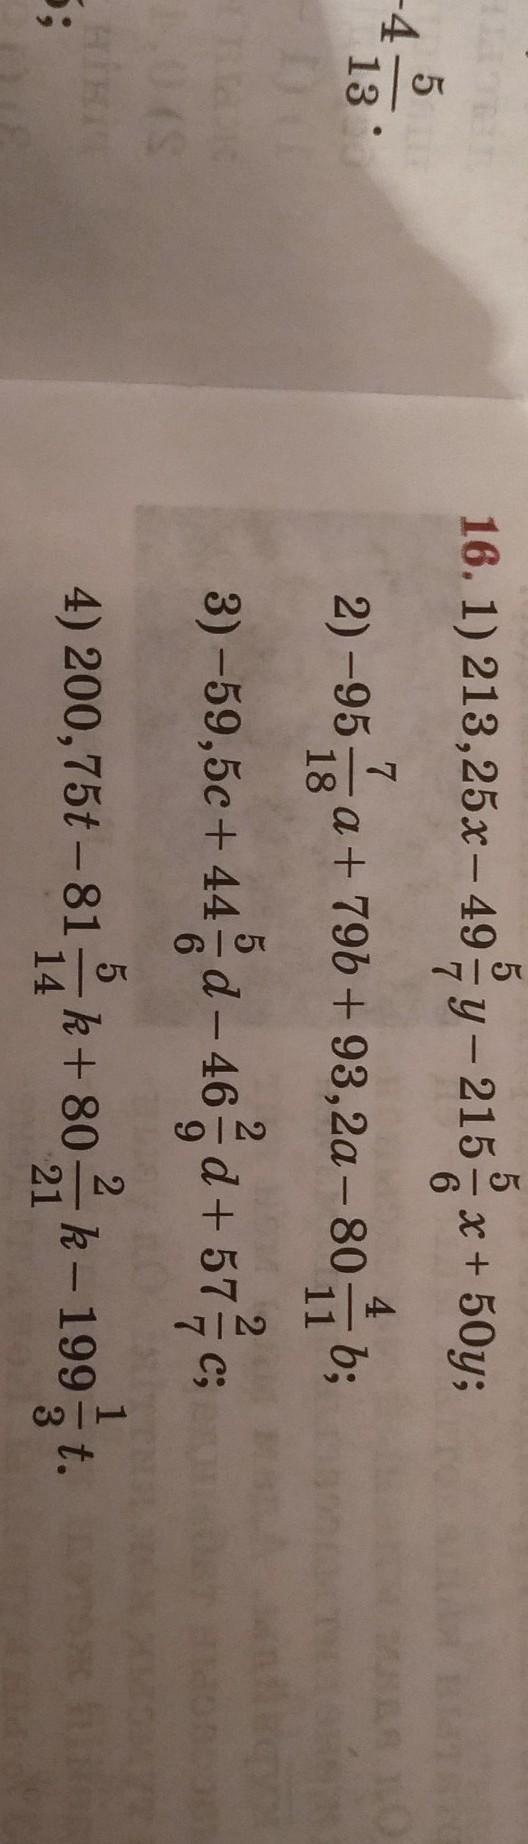 -4 5/13.
16. 1) 213,25x – 49 5/7 y – 215 5/6 x + 50y;
2) –95 7/18 a + 79b + 93,2a – 80 4/11 b;
3) –59,5c + 44 5/6 d – 46 2/9 d + 57 2/7 c;
4) 200,75t – 81 5/14 k + 80 2/21 k – 199 1/3 t.